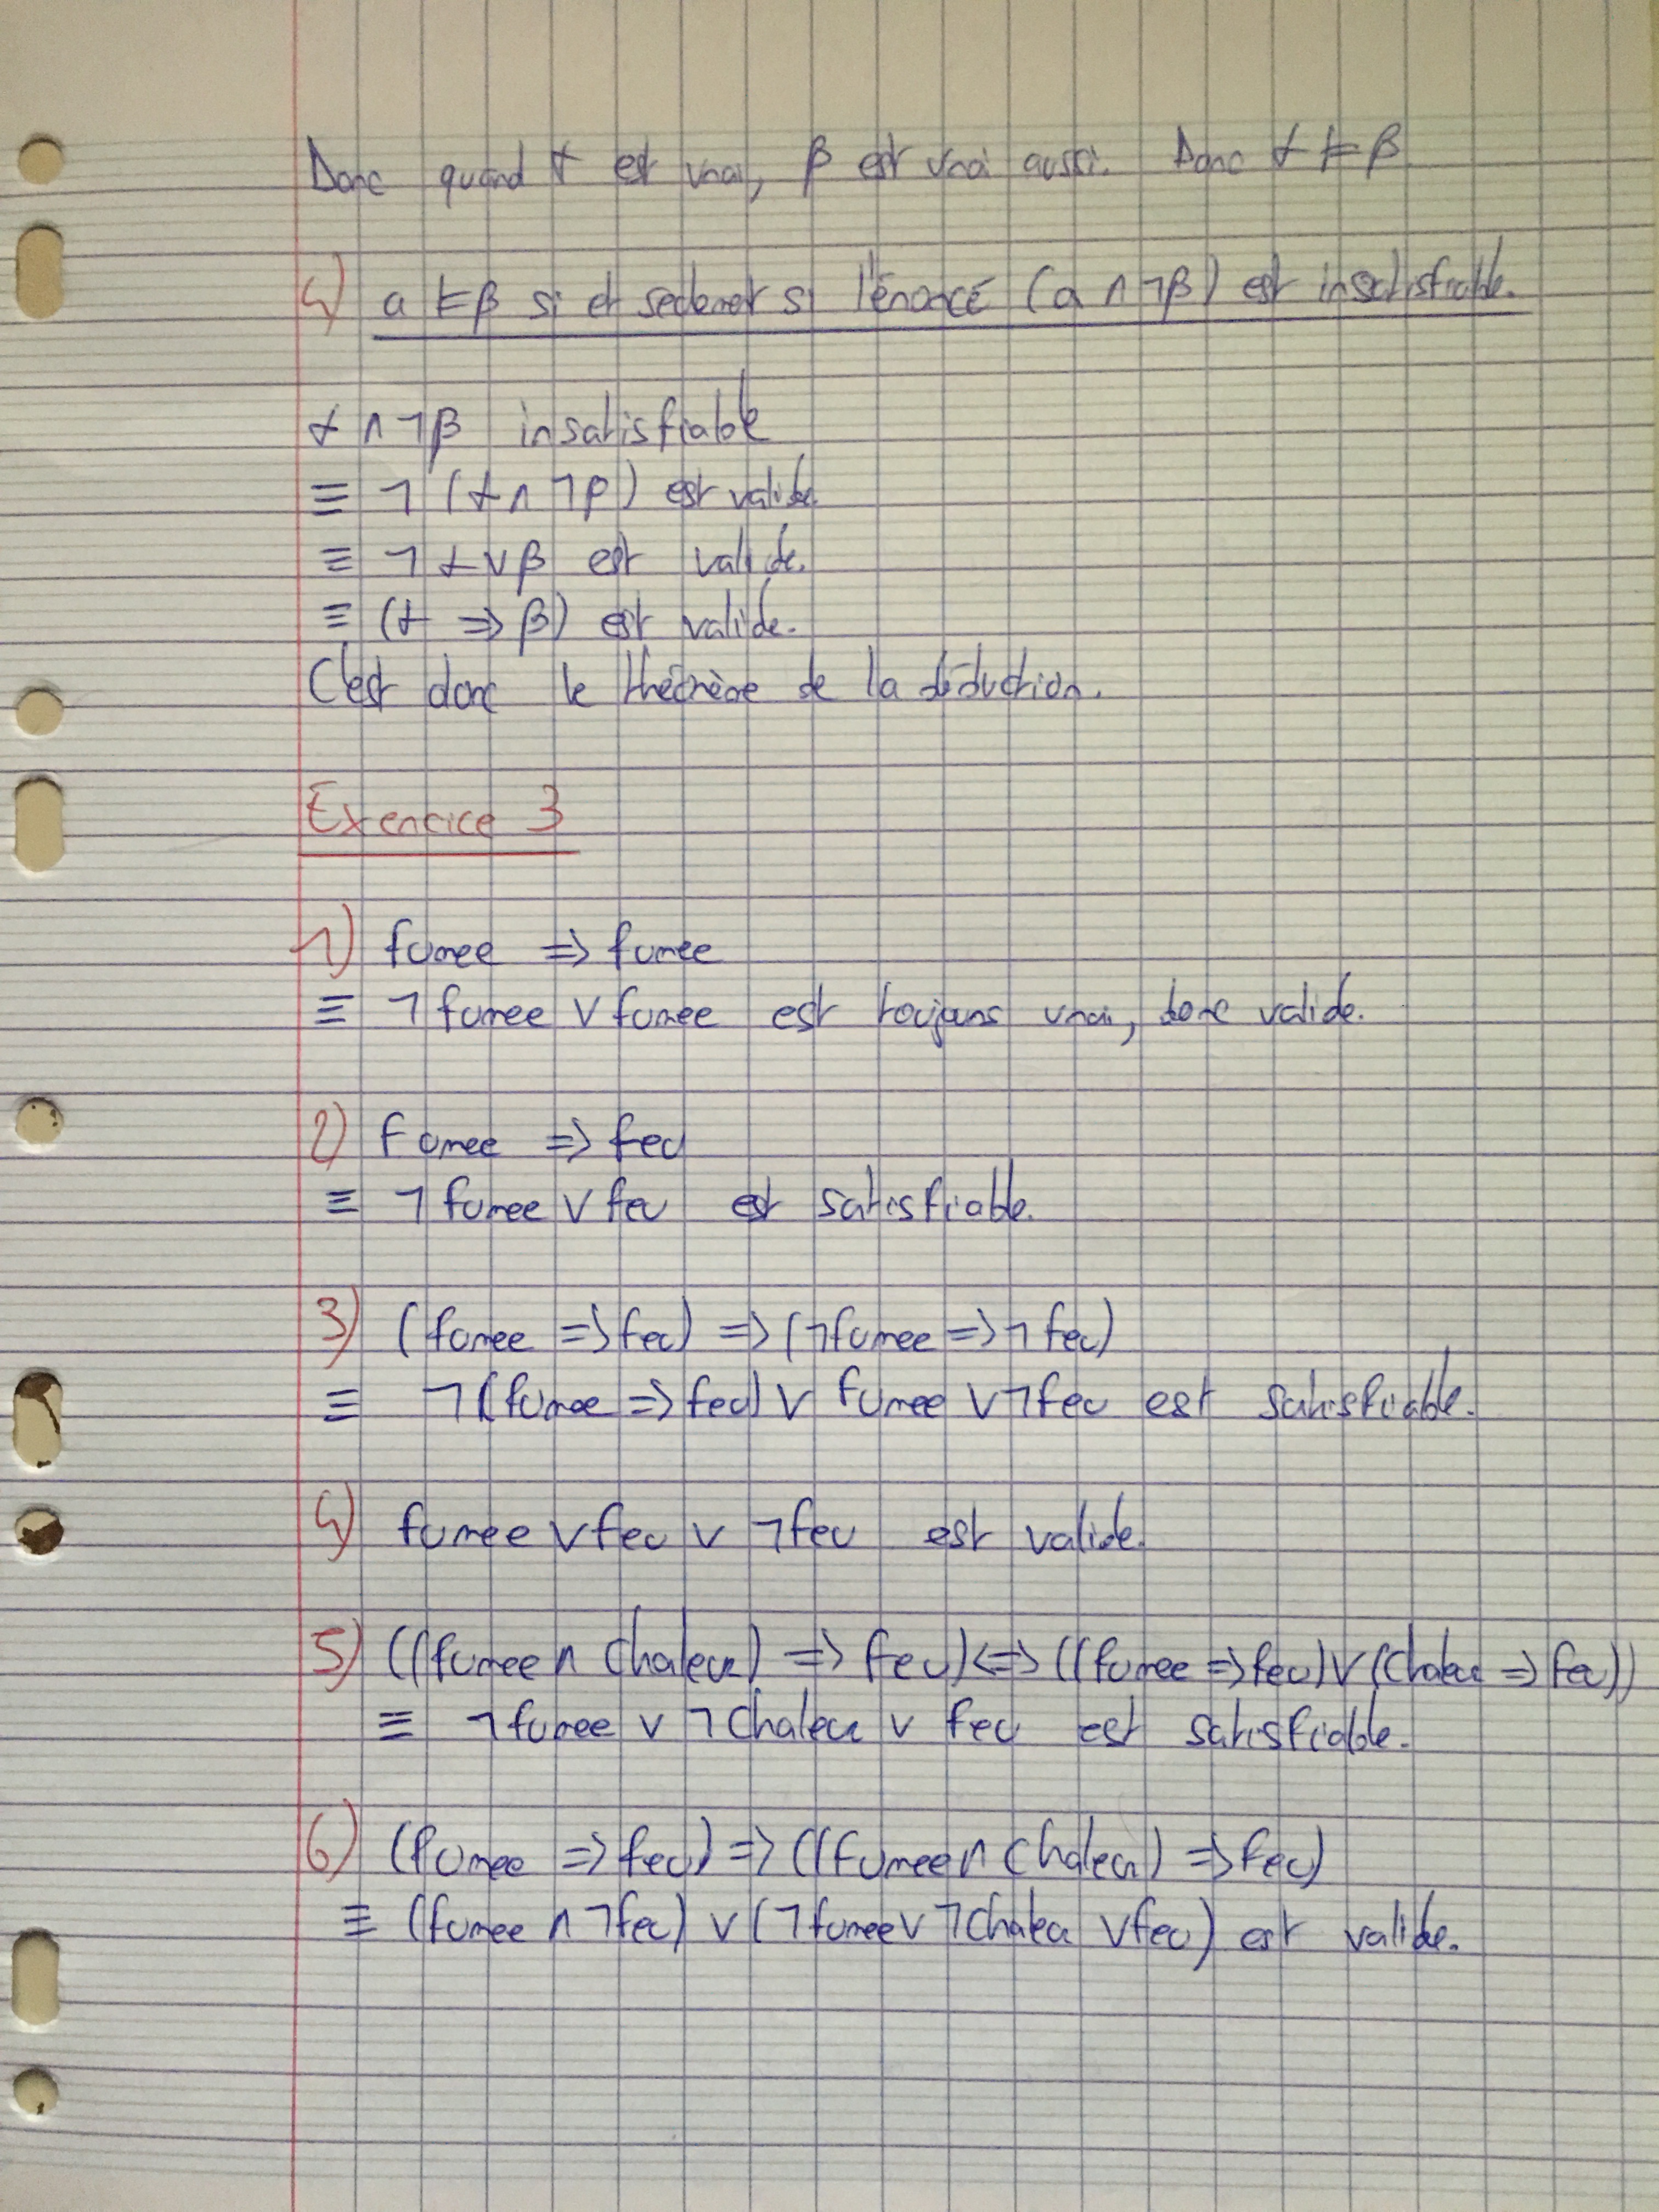 Donc quand α est vrai, β est vrai aussi. Donc α ⊨ β
4) a ⊨ β si et seulement si l'énoncé (a ∧ ¬β) est insatisfiable.
α ∧ ¬β insatisfiable
≡ ¬ (α ∧ ¬β) est valide.
≡ ¬ α ∨ β est valide.
≡ (α => β) est valide.
C'est donc le théorème de la déduction.
Exercice 3
1) fumee => fumee
≡ ¬ fumee ∨ fumee est toujours vrai, donc valide.
2) Fumee => feu
≡ ¬ fumee ∨ feu est satisfiable.
3) (fumee => feu) => (¬fumee => ¬ feu)
≡ ¬(fumee => feu) ∨ fumee ∨ ¬feu est satisfiable.
4) fumee ∨ feu ∨ ¬feu est valide.
5) ((fumee ∧ Chaleur) => feu) <=> ((fumee => feu) ∨ (Chaleur => feu))
≡ ¬fumee ∨ ¬Chaleur ∨ feu est satisfiable.
6) (fumee => feu) => ((fumee ∧ Chaleur) => feu)
≡ (fumee ∧ ¬feu) ∨ (¬fumee ∨ ¬Chaleur ∨ feu) est valide.